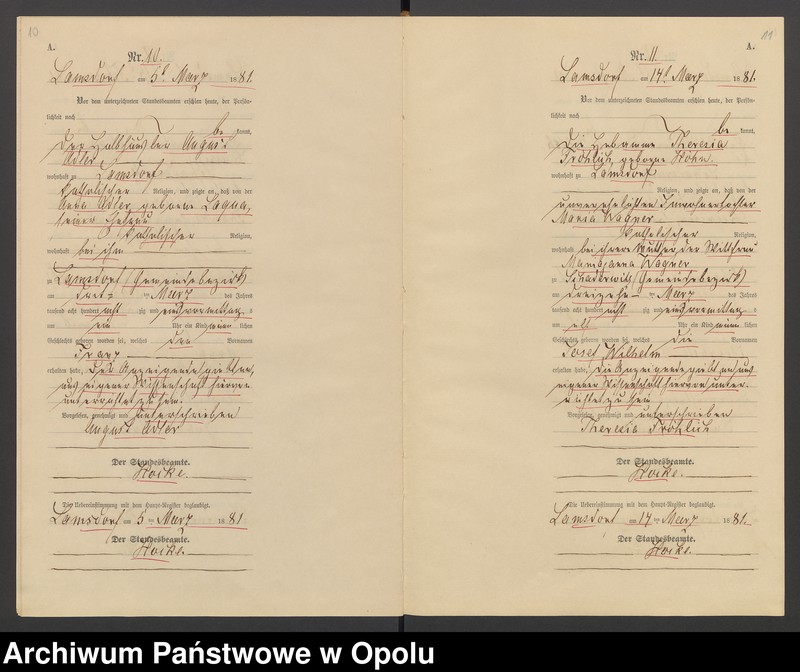 10
A.
Nr. 10.
Lamsdorf am 5t März 1881.
Vor dem unterzeichneten Standesbeamten erschien heute, der Persön-
lichkeit nach
be kannt,
der Halbhäusler August
Adler,
wohnhaft zu Lamsdorf
katholischer Religion, und zeigte an, daß von der
Anna Adler, geborene Lagua,
seiner Ehefrau
katholischer Religion,
wohnhaft bei ihm
zu Lamsdorf (Gemeindebezirk)
am ten März des Jahres
tausend acht hundert acht zig und eins vormittag s
um ein Uhr ein Kind männ lichen
Geschlechts geboren worden sei, welches den Vornamen
Franz
erhalten habe, Der Anzeigende giebt an,
aus eigener Wissenschaft hiervon
unterrichtet zu sein.
Vorgelesen, genehmigt und unterschrieben
August Adler
Der Standesbeamte.
Hocke.
Die Uebereinstimmung mit dem Haupt-Register beglaubigt.
Lamsdorf am 5 ten März 1881
Der Standesbeamte.
Hocke.
11
A.
Nr. 11.
Lamsdorf am 14t März 1881.
Vor dem unterzeichneten Standesbeamten erschien heute, der Persön-
lichkeit nach
be kannt,
die Hebamme Theresia
Fröhlich, geborene Höhn
wohnhaft zu Lamsdorf
Religion, und zeigte an, daß von der
unverehelichten Inwohnertochter
Maria Wagner
katholischer Religion,
wohnhaft bei ihrer Mutter der Wittfrau
Marianna Wagner
zu (Gemeindebezirk)
am dreizehn ten März des Jahres
tausend acht hundert acht zig und eins vormittag s
um elf Uhr ein Kind männ lichen
Geschlechts geboren worden sei, welches die Vornamen
Josef Wilhelm
erhalten habe, die Anzeigende giebt an, aus
eigener Wissenschaft hiervon unter-
richtet zu sein
Vorgelesen, genehmigt und unterschrieben
Theresia Fröhlich
Der Standesbeamte.
Hocke.
Die Uebereinstimmung mit dem Haupt-Register beglaubigt.
Lamsdorf am 14 ten März 1881.
Der Standesbeamte.
Hocke.
Archiwum Państwowe w Opolu